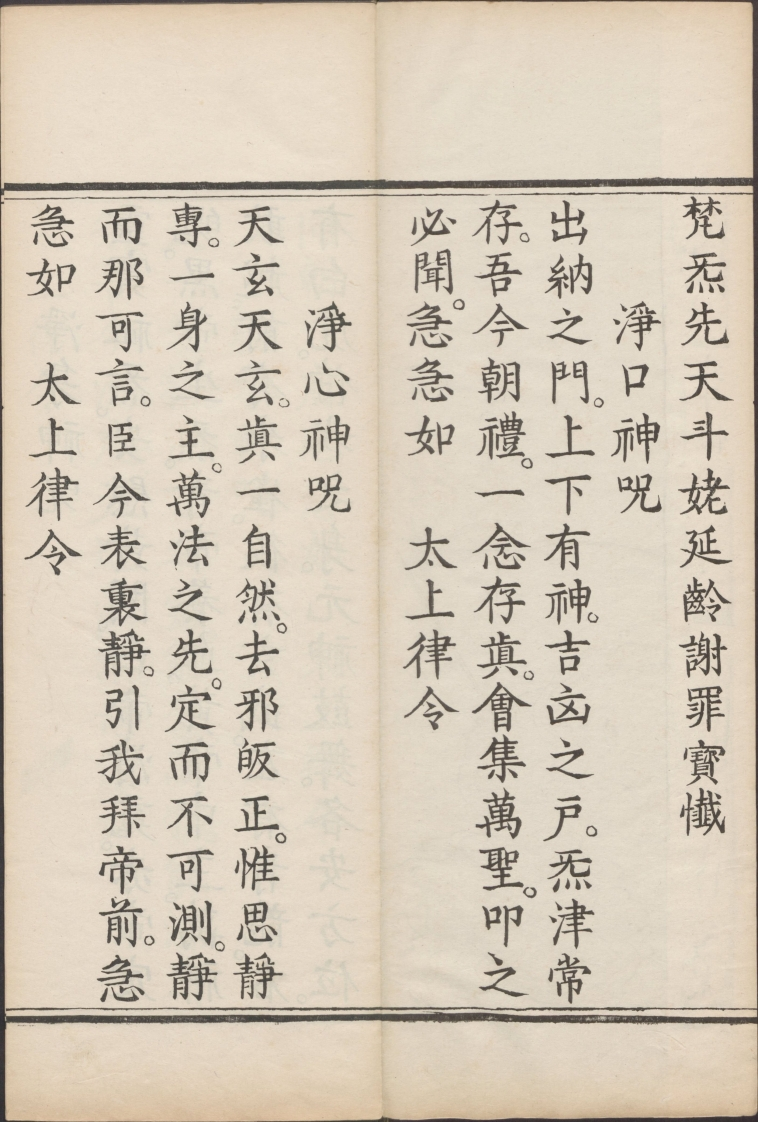 梵炁先天斗姥延齡謝罪寶懺
淨口神咒
出納之門。上下有神。吉凶之戶。炁津常
存。吾今朝禮。一念存眞。會集萬聖。叩之
必聞。急急如 太上律令
淨心神咒
天玄天玄。眞一自然。去邪皈正。惟思靜
專。一身之主。萬法之先。定而不可測。靜
而那可言。臣今表裏靜。引我拜帝前。急
急如 太上律令